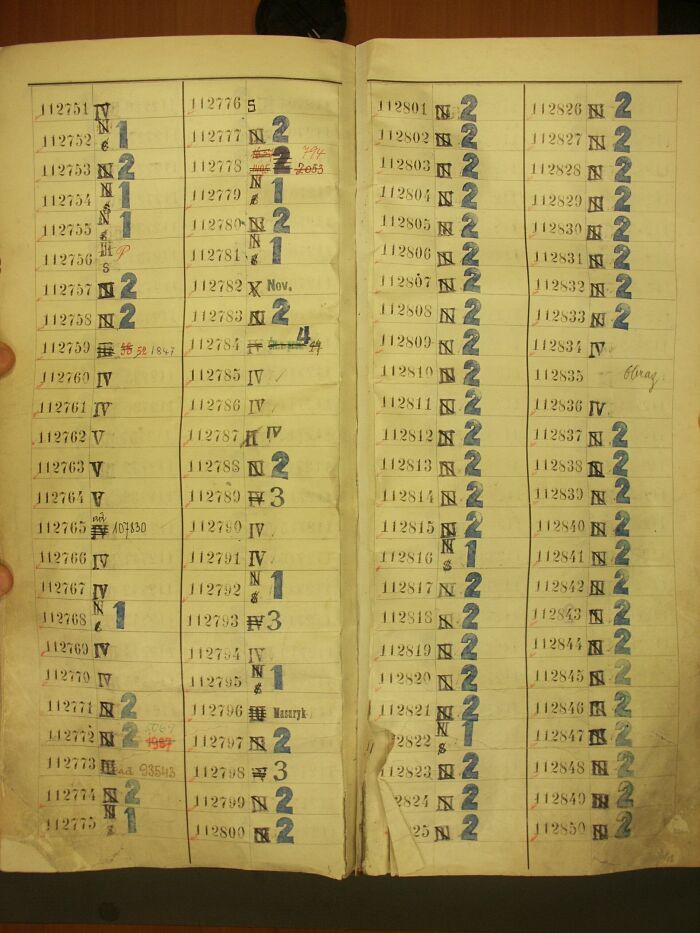 112751 IV
112752 N s 1
112753 N 2
112754 N s 1
112755 N s 1
112756 III s
112757 N 2
112758 N 2
112759 III 52 1847
112760 IV
112761 IV
112762 V
112763 V
112764 V
112765 IV 107830
112766 IV
112767 IV
112768 N 1
112769 IV
112770 IV
112771 N 2
112772 N 2 1987
112773 III 93543
112774 N 2
112775 N s 1
112776 S
112777 N 2
112778 2 794 2053
112779 N s 1
112780 N 2
112781 N s 1
112782 X Nov.
112783 N 2
112784 IV 4
112785 IV
112786 IV
112787 II IV
112788 N 2
112789 IV 3
112790 IV
112791 IV
112792 N s 1
112793 IV 3
112794 IV
112795 N s 1
112796 III Masaryk
112797 N 2
112798 3
112799 N 2
112800 N 2
112801 N 2
112802 N 2
112803 N 2
112804 N 2
112805 N 2
112806 N 2
112807 N 2
112808 N 2
112809 N 2
112810 N 2
112811 N 2
112812 N 2
112813 N 2
112814 N 2
112815 N 2
112816 N s 1
112817 N 2
112818 N 2
112819 N 2
112820 N 2
112821 N 2
2822 N s 1
112823 N 2
2824 N 2
25 N 2
112826 N 2
112827 N 2
112828 N 2
112829 N 2
112830 N 2
112831 N 2
112832 N 2
112833 N 2
112834 IV
112835 Obraz
112836 IV
112837 N 2
112838 N 2
112839 N 2
112840 N 2
112841 N 2
112842 N 2
112843 N 2
112844 N 2
112845 N 2
112846 N 2
112847 N 2
112848 N 2
112849 N 2
112850 N 2